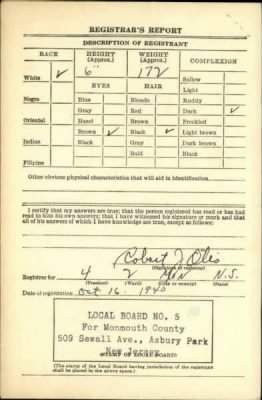 REGISTRAR'S REPORT
DESCRIPTION OF REGISTRANT
RACE HEIGHT (Approx.) WEIGHT (Approx.) COMPLEXION
White ✓ 6" 172 Sallow
Light
EYES HAIR Ruddy
Negro Blue Blonde Dark ✓
Gray Red Freckled
Oriental Hazel Brown Light brown
Brown ✓ Black ✓ Dark brown
Indian Black Gray Black
Bald
Filipino
Other obvious physical characteristics that will aid in identification
I certify that my answers are true; that the person registered has read or has had
read to him his own answers; that I have witnessed his signature or mark and that
all of his answers of which I have knowledge are true, except as follows:
Robert J
(Signature of registrar)
Registrar for 4 2 Mon N.J.
(Precinct) (Ward) (City or county) (State)
Date of registration Oct 16 1940
LOCAL BOARD NO. 5
For Monmouth County
509 Sewall Ave., Asbury Park
New Jersey
(STAMP OF LOCAL BOARD)
(The stamp of the Local Board having jurisdiction of the registrant
shall be placed in the above space.)